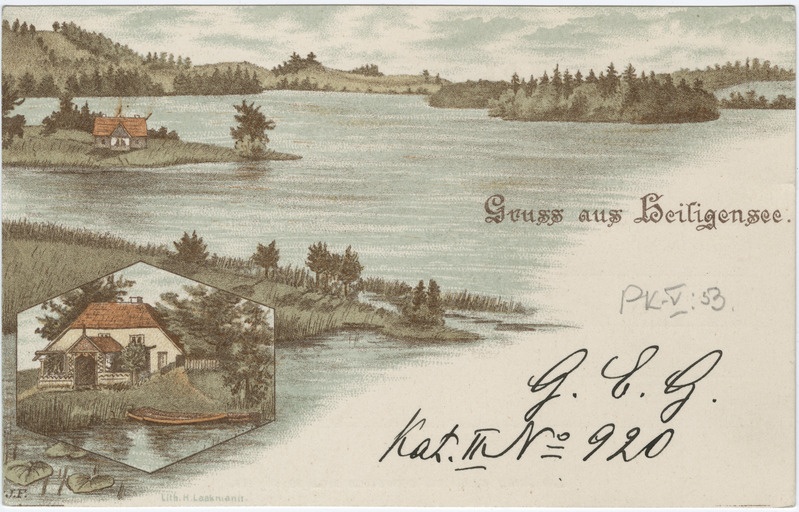 Gruss aus Heiligensee.
PK-V:53.
G. E. G.
Kat. III No 920
J.P.
Lith. H. Laakmann.